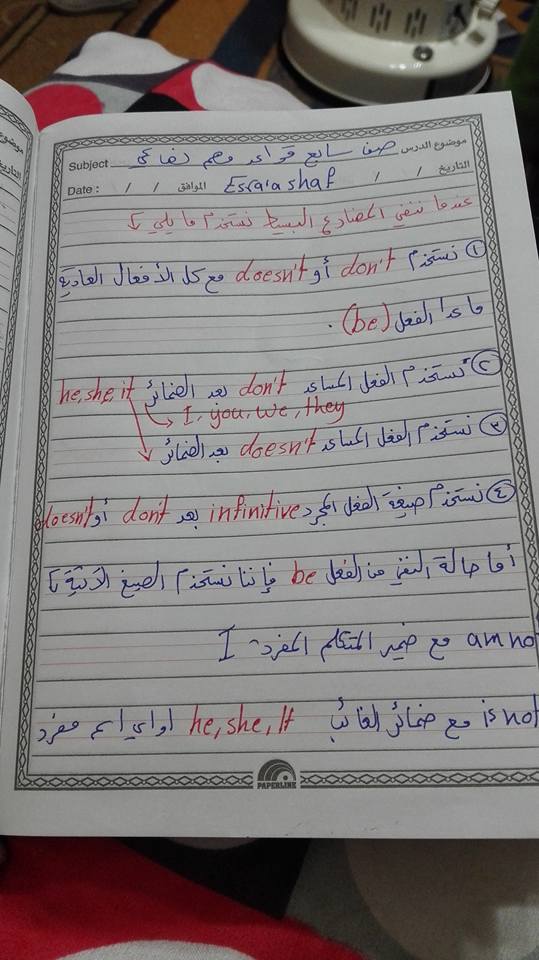 موضوع الدرس صف سابع قواعد وهم Subject
التاريخ / / Esraa shaf الموافق / / Date :
عندما ننفي المضارع البسيط نستخدم ما يلي
① نستخدم don't أو doesn't مع كل الأفعال العادية
ما عدا الفعل (be) .
② نستخدم الفعل المساعد don't بعد الضمائر he, she, it
I, you, we, they
③ نستخدم الفعل المساعد doesn't بعد الضمائر
④ نستخدم صيغة الفعل المجرد infinitive بعد don't أو doesn't
أما حالة النفي من الفعل be فإننا نستخدم الصيغ الآتية
am not مع ضمير المتكلم المفرد I
is not مع ضمائر الغائب he, she, It او اي اسم مفرد
PAPERLINE
موضوع
التاريخ